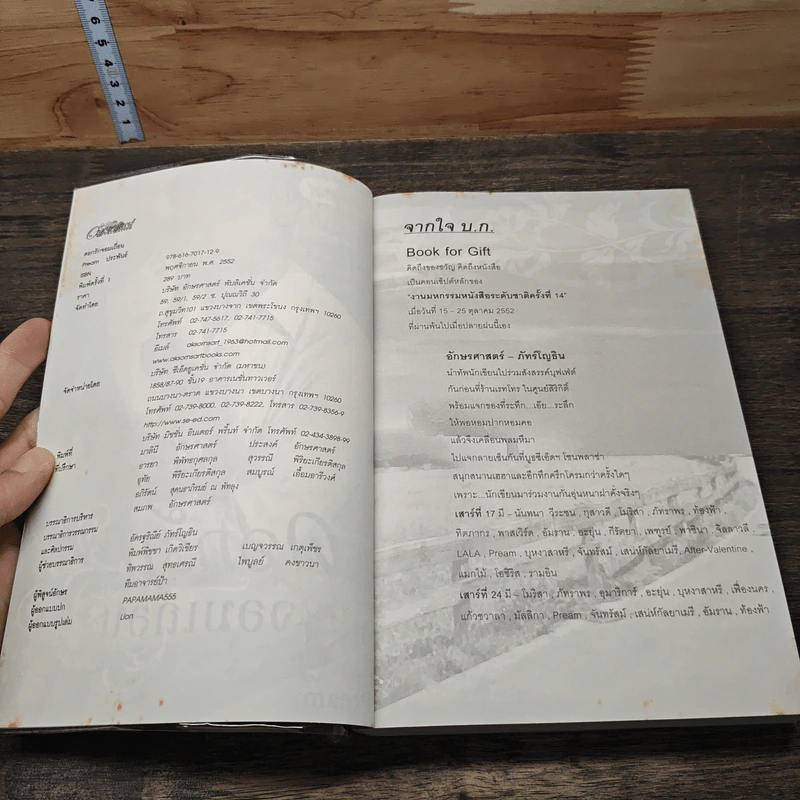 6 5 4 3 2 1
ดอกรักจอมเถื่อน
Pream ประพันธ์
ISBN 978-616-7017-12-9
พิมพ์ครั้งที่ 1 พฤศจิกายน พ.ศ. 2552
ราคา 289 บาท
จัดทำโดย บริษัท อักษรศาสตร์ พับลิเคชั่น จำกัด
59, 59/1, 59/2 ซ. ปุณณวิถี 30
ถ.สุขุมวิท101 แขวงบางจาก เขตพระโขนง กรุงเทพฯ 10260
โทรศัพท์ 02-747-5617, 02-741-7715
โทรสาร 02-741-7715
อีเมล์ aksornsart_1963@hotmail.com
www.aksornsartbooks.com
จัดจำหน่ายโดย บริษัท ซีเอ็ดยูเคชั่น จำกัด (มหาชน)
1858/87-90 ชั้น19 อาคารเนชั่นทาวเวอร์
ถนนบางนา-ตราด แขวงบางนา เขตบางนา กรุงเทพฯ 10260
โทรศัพท์ 02-739-8000, 02-739-8222, โทรสาร 02-739-8356-9
http://www.se-ed.com
พิมพ์ที่ บริษัท มิชชั่น อินเตอร์ พริ้นท์ จำกัด โทรศัพท์ 02-434-3898-99
ที่ปรึกษา มาลินี อักษรศาสตร์ ประสงค์ อักษรศาสตร์
อารยา พิพัทธกุศลกุล สุวรรณี พิริยะเกียรติสกุล
อุทัย พิริยะเกียรติสกุล สมบูรณ์ เอื้อมอารีวงศ์
อภิรัตน์ สุคนธาภิรมย์ ณ พัทลุง
สมภพ อักษรศาสตร์
บรรณาธิการบริหาร อัครฐรัณิธ์ ภัทร์โญธิน
บรรณาธิการวรรณกรรม พิมพ์พิชชา เกิดวิเชียร เบญจวรรณ เกตุเพ็ชร
และศิลปกรรม
ผู้ช่วยบรรณาธิการ ทิพวรรณ สุทธเศรณี ไพบูลย์ คงชาวนา
ผู้พิสูจน์อักษร ทีมอาจารย์ป้า
ผู้ออกแบบปก PAPAMAMA555
ผู้ออกแบบรูปเล่ม Lion
จากใจ บ.ก.
Book for Gift
คิดถึงของขวัญ คิดถึงหนังสือ
เป็นคอนเซ็ปต์หลักของ
"งานมหกรรมหนังสือระดับชาติครั้งที่ 14"
เมื่อวันที่ 15 - 25 ตุลาคม 2552
ที่ผ่านพ้นไปเมื่อปลายฝนนี้เอง
อักษรศาสตร์ – ภัทร์โญธิน
นำทัพนักเขียนไปร่วมสังสรรค์บุฟเฟ่ต์
กันก่อนที่ร้านเรทโทร ในศูนย์สิริกิติ์
พร้อมแจกของที่ระทึก...เอ๊ย...ระลึก
ให้พอหอมปากหอมคอ
แล้วจึงเคลื่อนพลมหึมา
ไปแจกลายเซ็นกันที่บูธซีเอ็ดฯ โซนพลาซ่า
สนุกสนานเฮฮาและอึกทึกครึกโครมกว่าครั้งใดๆ
เพราะ...นักเขียนมาร่วมงานกันอุ่นหนาฝาคั่งจริงๆ
เสาร์ที่ 17 มี – นันทนา วีระชน , กุสาวดี , โมริสา , ภัทราพร , ท้องฟ้า ,
ทิตภากร , พาสเวิร์ด , อัมราน , อะยุ่น , กีรัตยา , เพฑูรย์ , พาซินา , จิลลาวลี ,
LALA , Pream , บุหงาสาหรี , จันทรัสม์ , เสน่ห์กัลยาเมรี , After-Valentine ,
แมกไม้ , โอชีริส , รามอิน
เสาร์ที่ 24 มี – โมริสา , ภัทราพร , อุมาริการ์ , อะยุ่น , บุหงาสาหรี , เฟื่องนคร ,
แก้วชวาลา , มัลลิกา , Pream , จันทรัสม์ , เสน่ห์กัลยาเมรี , อัมราน , ท้องฟ้า